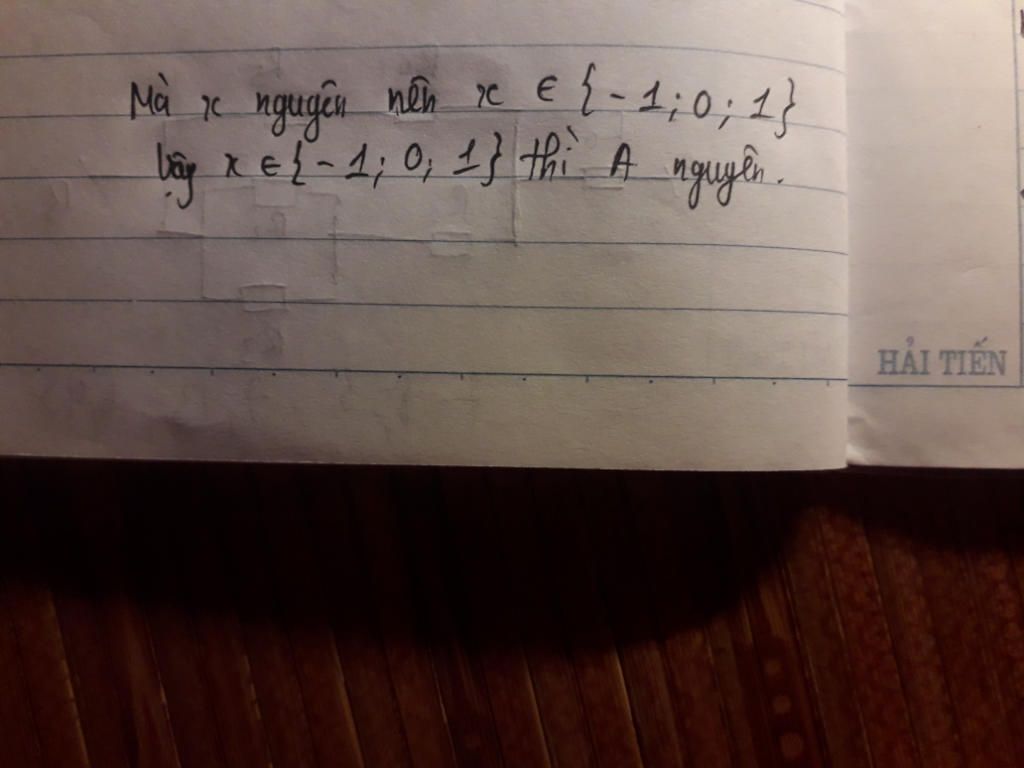 Mà x nguyên nên x ∈ {-1; 0; 1}
Vậy x ∈ {-1; 0; 1} thì A nguyên.
HẢI TIẾN